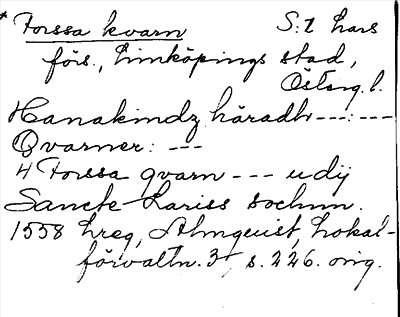 * Forssa kvarn S:t Lars
förs., Linköpings stad,
Östvg. l.
Hanakindz häradh ---:---
Qvarner: ---
4 Forssa qvarn --- udij
Sancte Lariss sochnn.
1558 hreg, Almquist, Lokal-
förvaltn. 3, s. 226. orig.